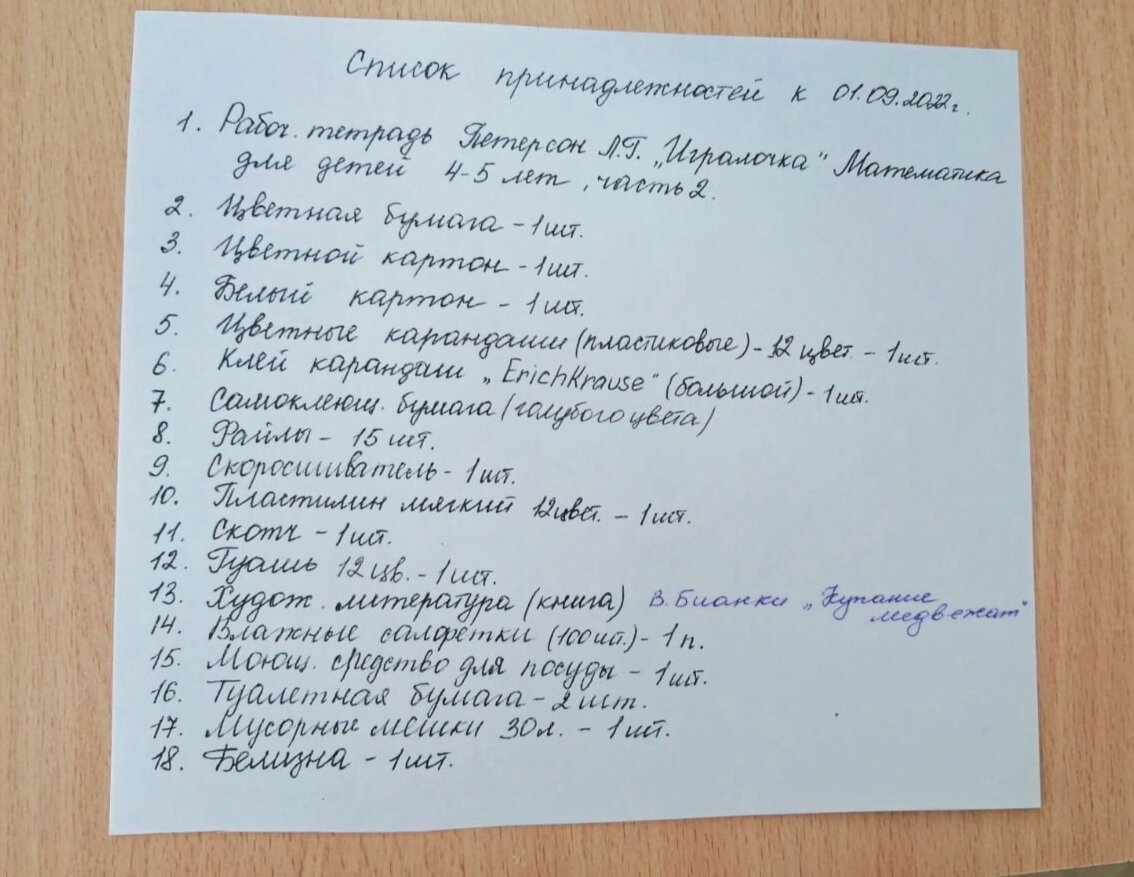 Список принадлежностей к 01.09.2022г.
1. Рабоч. тетрадь Петерсон Л.Г. „Игралочка" Математика
для детей 4-5 лет, часть 2.
2. Цветная бумага - 1шт.
3. Цветной картон - 1шт.
4. Белый картон - 1шт.
5. Цветные карандаши (пластиковые) - 12 цвет. - 1шт.
6. Клей карандаш „ErichKrause" (большой) - 1шт.
7. Самоклеющ. бумага (голубого цвета)
8. Файлы - 15 шт.
9. Скоросшиватель - 1шт.
10. Пластилин мягкий 12цвет. - 1шт.
11. Скотч - 1шт.
12. Гуашь 12цв. - 1шт.
13. Худож. литература (книга) В. Бианки „Купание
медвежат"
14. Влажные салфетки (100шт.) - 1п.
15. Моющ. средство для посуды - 1шт.
16. Туалетная бумага - 2шт.
17. Мусорные мешки 30л. - 1шт.
18. Белизна - 1шт.